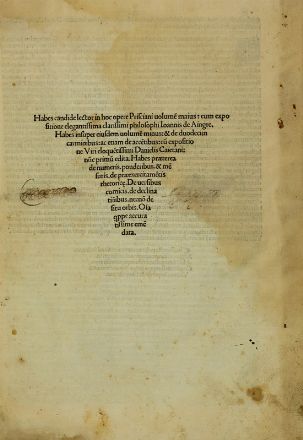 Habes candide lector in hoc opere Prisciani volumē maius : cum expo
sitione elegantissima clarissimi philosophi Ioannis de Aingre.
Habes insuper eiusdem volumē minus: & de duodecim
carminibus: ac etiam de accētibus: cū expositio
ne Viri eloquētissimi Danielis Caietani:
nūc primū edita. Habes præterea
de numeris. ponderibus. & mē
suris. de præexercitamētis
rhetoricę. De versibus
comicis. de declina
tiōibus. necnō de
situ orbis. Oīa
accura
tissime emē
data.